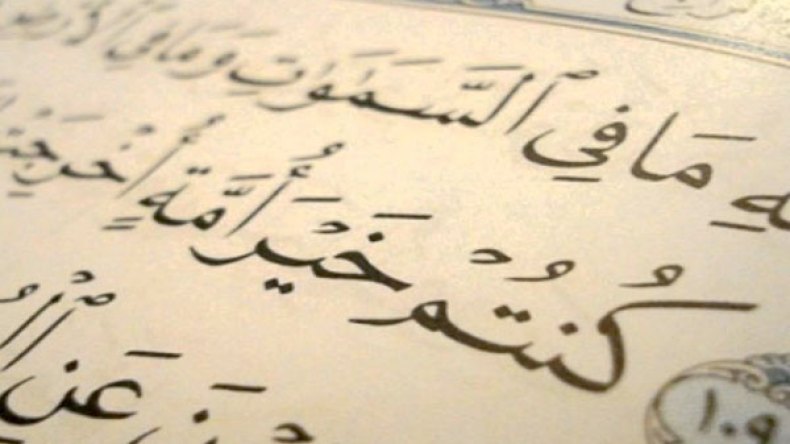 ـهِ مَا فِي ٱلسَّمَٰوَٰتِ وَمَا فِي ٱلْأَرْضِ
١٠٩ كُنتُمْ خَيْرَ أُمَّةٍ أُخْرِجَتْ
عَنِ